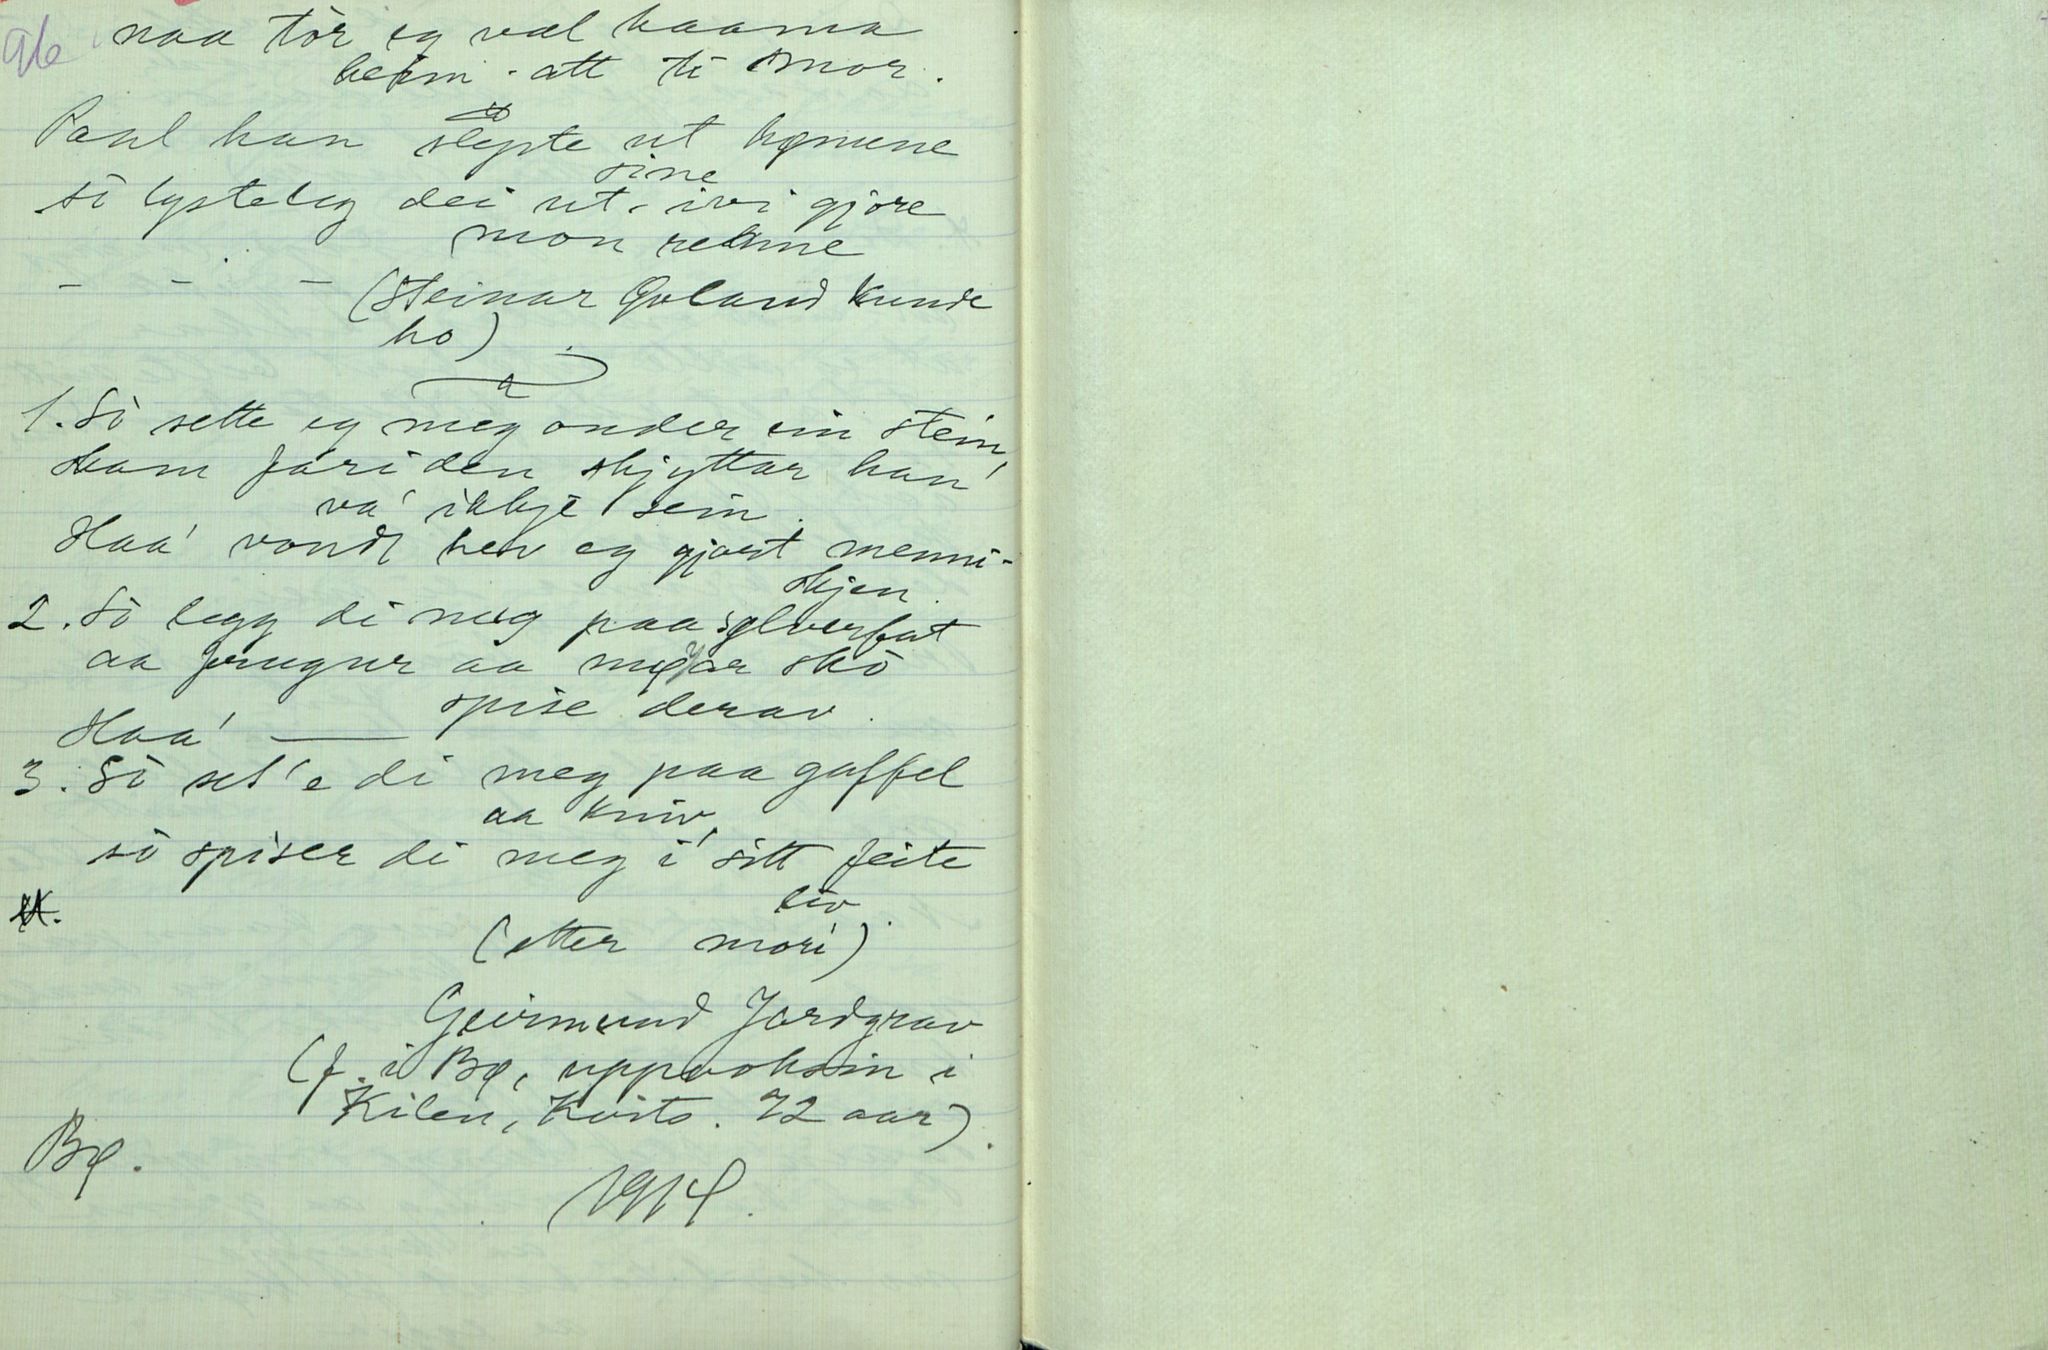 96 naa tòr eg vel kaama
heim att ti mor.
Paul han slepte ut hønune
sine
sò lysteleg dei ut ivi gjore
mon renne
– – – (Steinar Øvland kunde
ho).
1. Sò sette eg meg onder ein stein,
kam fari den skjyttar han
va' ikkje sein.
Haa' vondt hev eg gjort menni-
skjen.
2. Sò legg di meg paa sylverfat
aa frugur aa møyar skò
spise derav.
Haa' ——
3. Sò set'e di meg paa gaffel
aa kniv,
sò spiser di meg i sitt feite
liv.
(etter mori)
Geirmund Jordgrav
(f. i Bø, uppvoksin i
Kilen, Kvits. 72 aar).
Bø.
1914.